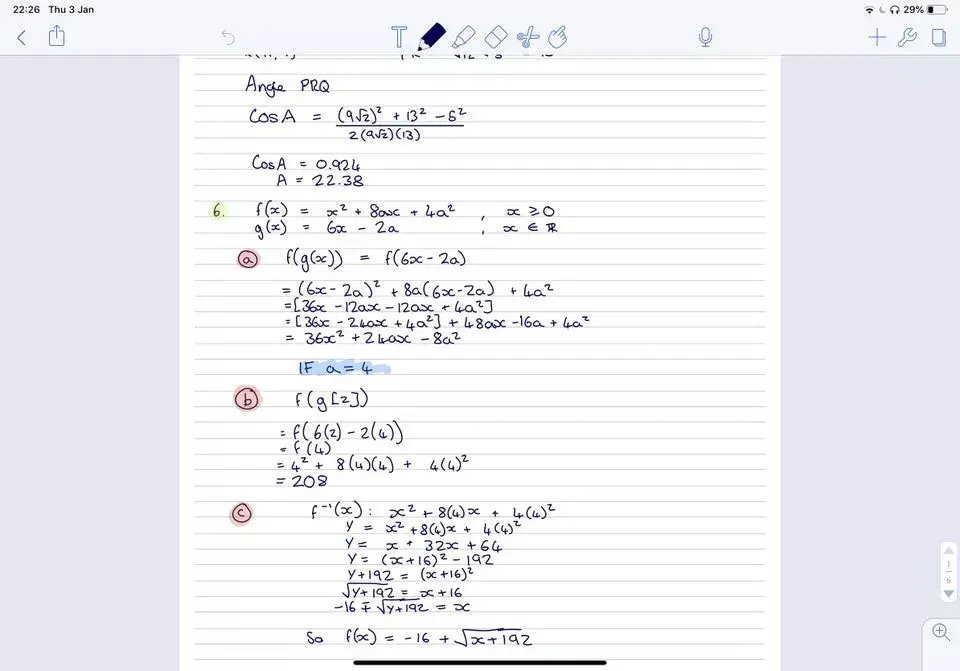 22:26 Thu 3 Jan
29%
Angle PRQ
Cos A = (9√2)² + 13² - 5²
2(9√2)(13)
Cos A = 0.924
A = 22.38
6. f(x) = x² + 8ax + 4a² , x ≥ 0
g(x) = 6x - 2a , x ∈ ℝ
a f(g(x)) = f(6x - 2a)
= (6x - 2a)² + 8a(6x - 2a) + 4a²
= [36x - 12ax - 12ax + 4a²]
= [36x - 24ax + 4a²] + 48ax - 16a + 4a²
= 36x² + 24ax - 8a²
IF a = 4
b f(g[2])
= f(6(2) - 2(4))
= f(4)
= 4² + 8(4)(4) + 4(4)²
= 208
c f⁻¹(x) : x² + 8(4)x + 4(4)²
y = x² + 8(4)x + 4(4)²
y = x + 32x + 64
y = (x+16)² - 192
y + 192 = (x+16)²
√y+192 = x + 16
-16 ∓ √y+192 = x
So f(x) = -16 + √x+192
1
6